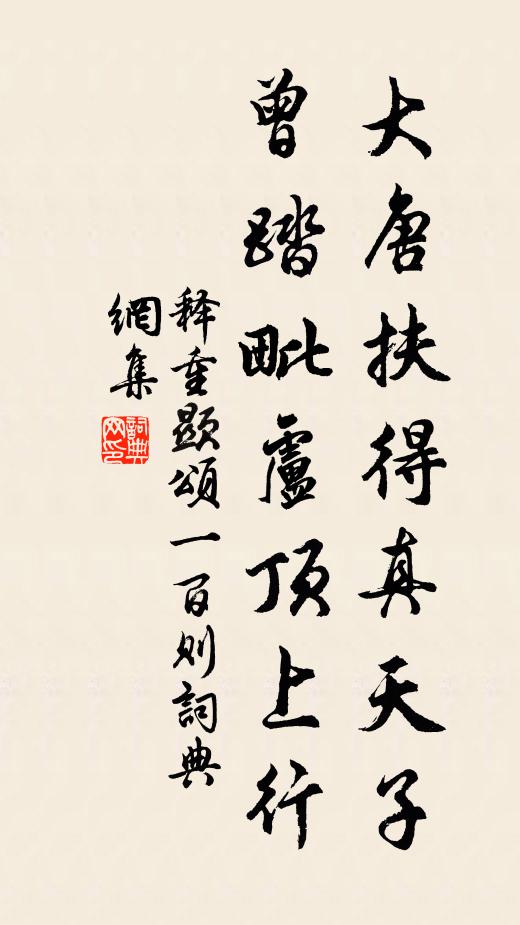 大唐扶得真天子
曾踏毗盧頂上行
释重顯頌一百则詞典
網集
詞典
网印